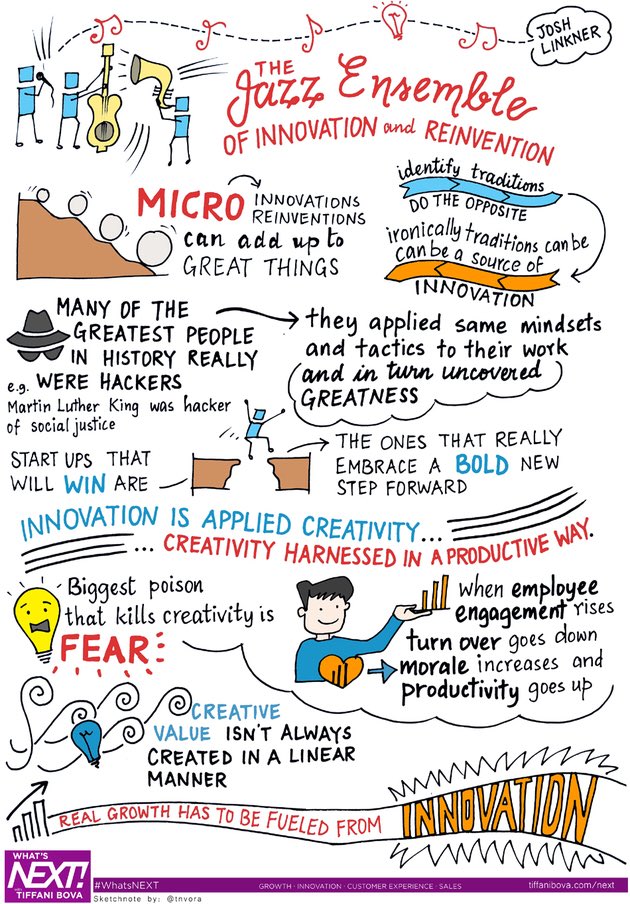 JOSH
LINKNER
THE
Jazz Ensemble
OF INNOVATION and REINVENTION
MICRO INNOVATIONS
REINVENTIONS
can add up to
GREAT THINGS
identify traditions
DO THE OPPOSITE
ironically traditions can be
can be a source of
INNOVATION
MANY OF THE
GREATEST PEOPLE
IN HISTORY REALLY
e.g. WERE HACKERS
Martin Luther King was hacker
of social justice
they applied same mindsets
and tactics to their work
and in turn uncovered
GREATNESS
START UPS THAT
WILL WIN ARE
THE ONES THAT REALLY
EMBRACE A BOLD NEW
STEP FORWARD
INNOVATION IS APPLIED CREATIVITY...
... CREATIVITY HARNESSED IN A PRODUCTIVE WAY.
Biggest poison
that kills creativity is
FEAR
when employee
engagement rises
turn over goes down
morale increases and
productivity goes up
CREATIVE
VALUE ISN'T ALWAYS
CREATED IN A LINEAR
MANNER
REAL GROWTH HAS TO BE FUELED FROM INNOVATION
WHAT'S
NEXT!
with
TIFFANI BOVA
#WhatsNEXT
GROWTH · INNOVATION · CUSTOMER EXPERIENCE · SALES
tiffanibova.com/next
Sketchnote by: @tnvora